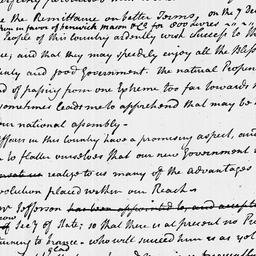 the Remittance on better Terms, on the 7 Dec
in favor of Fenwick Mason & Co for 800 livres
People of this country ardently wish success to th
e; and that they may speedily enjoy all the Bless
and good Government. The natural Propen
d of passing from one Extreme too far towards
sometimes leads me to apprehend that may be
our national assembly.—
Affairs in this country have a promising aspect, and
to flatter ourselves that our new Government
realize to us many of the advantages
evolution placed within our Reach
Jefferson has been appointed to, and accepte
Secy of State; so that there is at present no Pe
urney to France. who will succeed him is as yet
glad